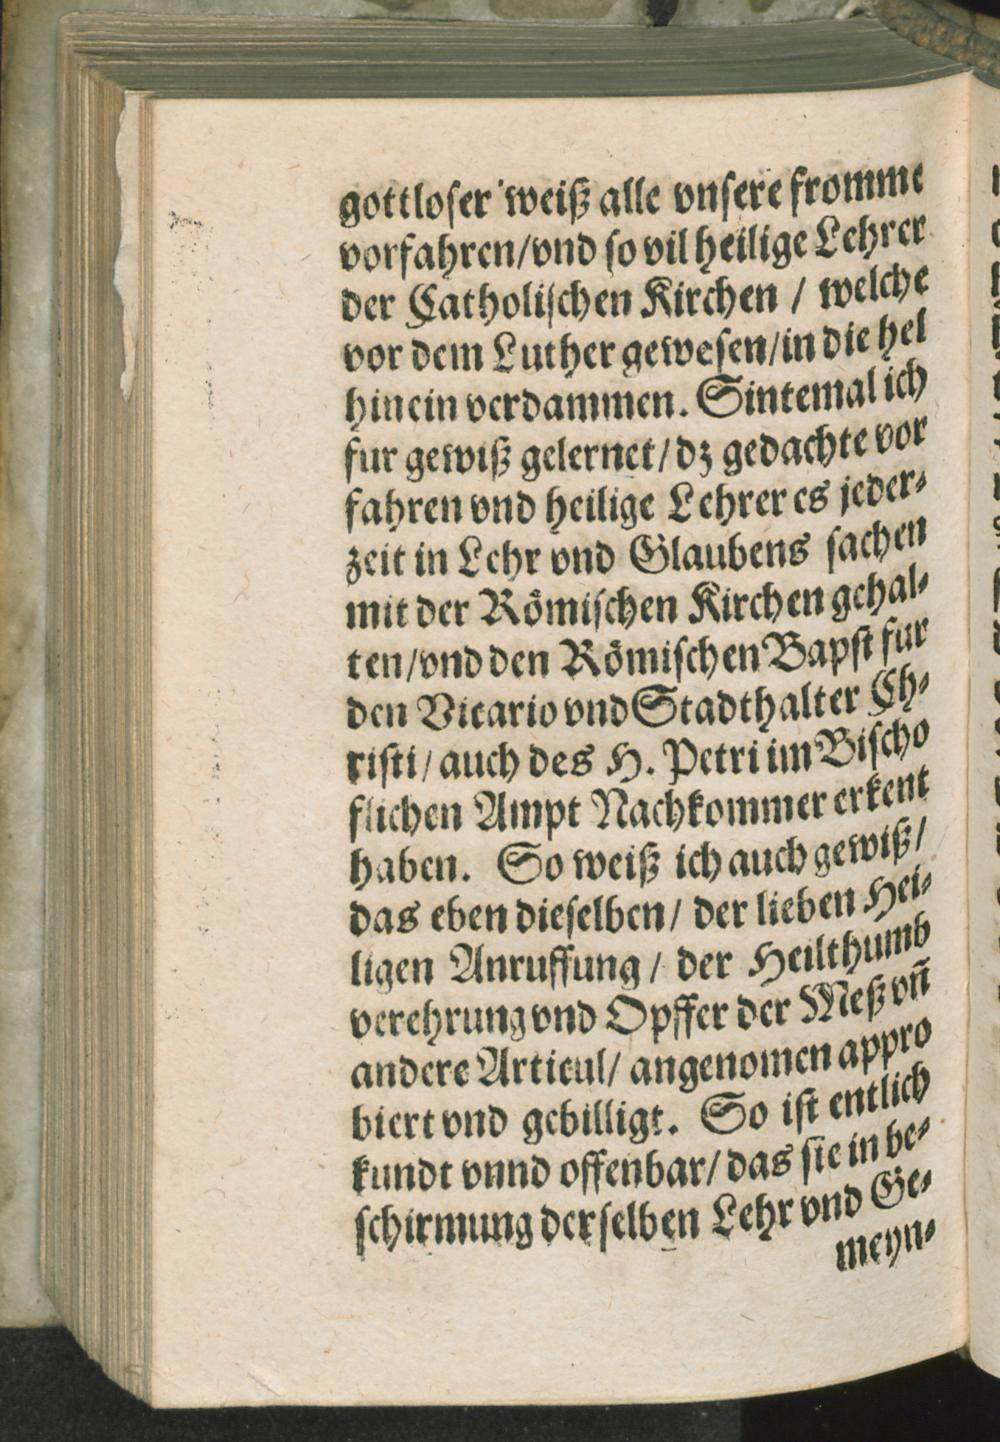 gottloser weiß alle vnsere fromme
vorfahren/vnd so vil heilige Lehrer
der Catholischen Kirchen / welche
vor dem Luther gewesen/in die hel
hinein verdammen. Sintemal ich
fur gewiß gelernet/dz gedachte vor
fahren vnd heilige Lehrer es jeder-
zeit in Lehr vnd Glaubens sachen
mit der Römischen Kirchen gehal-
ten/vnd den Römischen Bapst fur
den Vicario vnd Stadthalter Ch-
risti/ auch des H. Petri im Bischo
flichen Ampt Nachkommer erkent
haben. So weiß ich auch gewiß/
das eben dieselben/ der lieben Hei-
ligen Anruffung / der Heilthumb
verehrung vnd Opffer der Meß vn̄
andere Articul/ angenomen appro
biert vnd gebilligt. So ist entlich
kundt vnnd offenbar/ das sie in be-
schirmung derselben Lehr vnd Ge-
meyn-